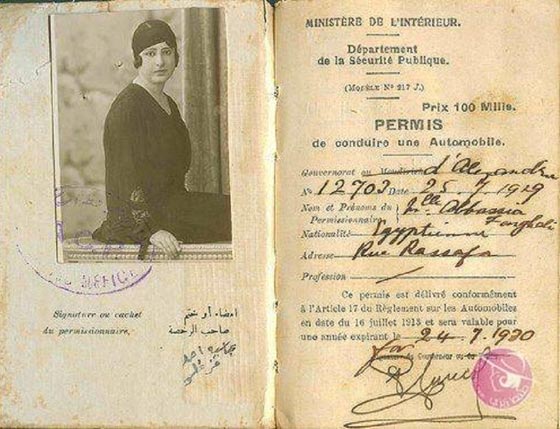 Signature ou cachet
du permissionnaire,
امضاء أو ختم
صاحب الرخصة
MINISTÈRE DE L'INTÉRIEUR.
Département
de la Sécurité Publique.
(MODÈLE N° 217 J.)
Prix 100 Mills.
PERMIS
de conduire une Automobile.
Gouvernorat ou Moudirieh d'Alexandrie
N° 12703 Date 25.7.1929
Nom et Prénoms du Permissionnaire Mlle Abbassia
Nationalité Egyptienne
Adresse Rue Rassafa
Profession
Ce permis est délivré conformément
à l'Article 17 du Règlement sur les Automobiles
en date du 16 juillet 1913 et sera valable pour
une année expirant le 24.7.1930